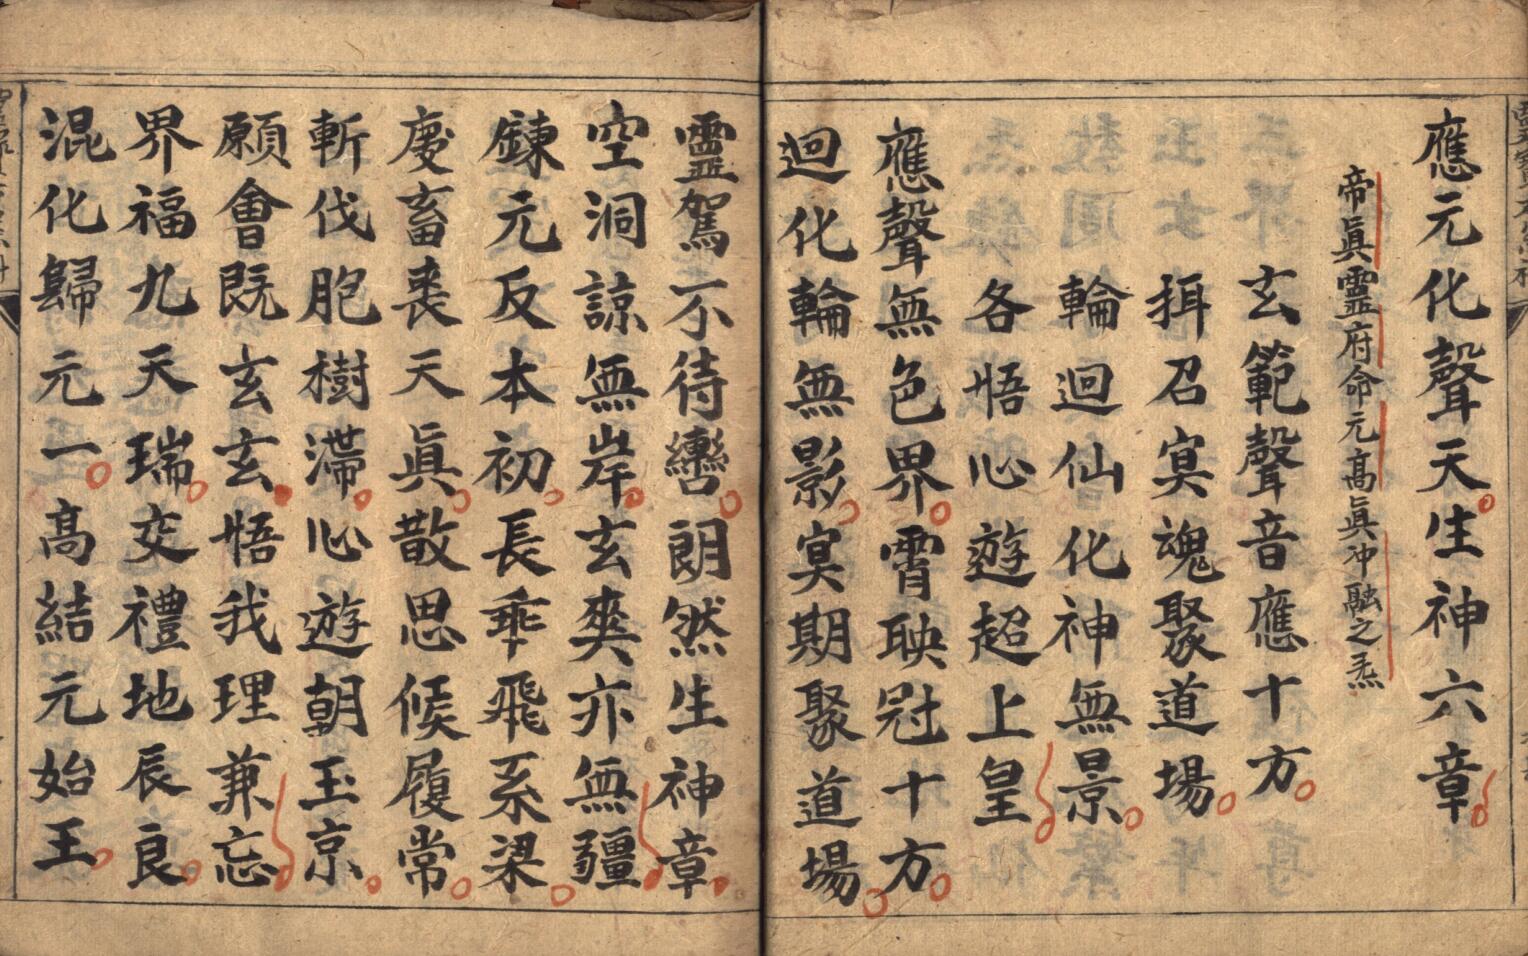 應元化聲天生神六章
帝眞靈府命元高眞冲融之炁
玄範聲音應十方
揖召冥魂聚道場
輪迴仙化神無景
各悟心遊超上皇
應聲無色界霄映冠十方
迴化輪無影冥期聚道場
靈駕不待轡朗然生神章
空洞諒無岸玄爽亦無疆
鍊元反本初長乖飛系梁
慶畜喪天眞散思候履常
斬伐胞樹滯心遊朝玉京
願會既玄玄悟我理兼忘
界福九天瑞交禮地辰良
混化歸元一高結元始王